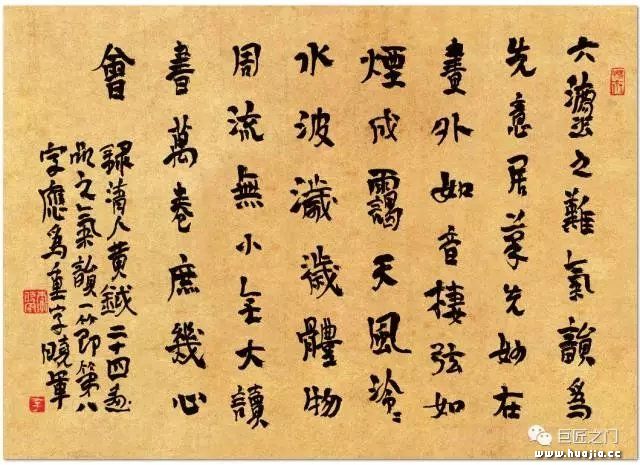 六灋之難氣韻為
先意居筆先妙在
畫外如音棲弦如
煙成靄天風泠〻
水波濊濊體物
周流無小大讀
書萬卷庶幾心
會
錄清人黃鉞二十四畫
品之氣韻一節第八
字應為字曉
巨匠之门
www.huajia.cc